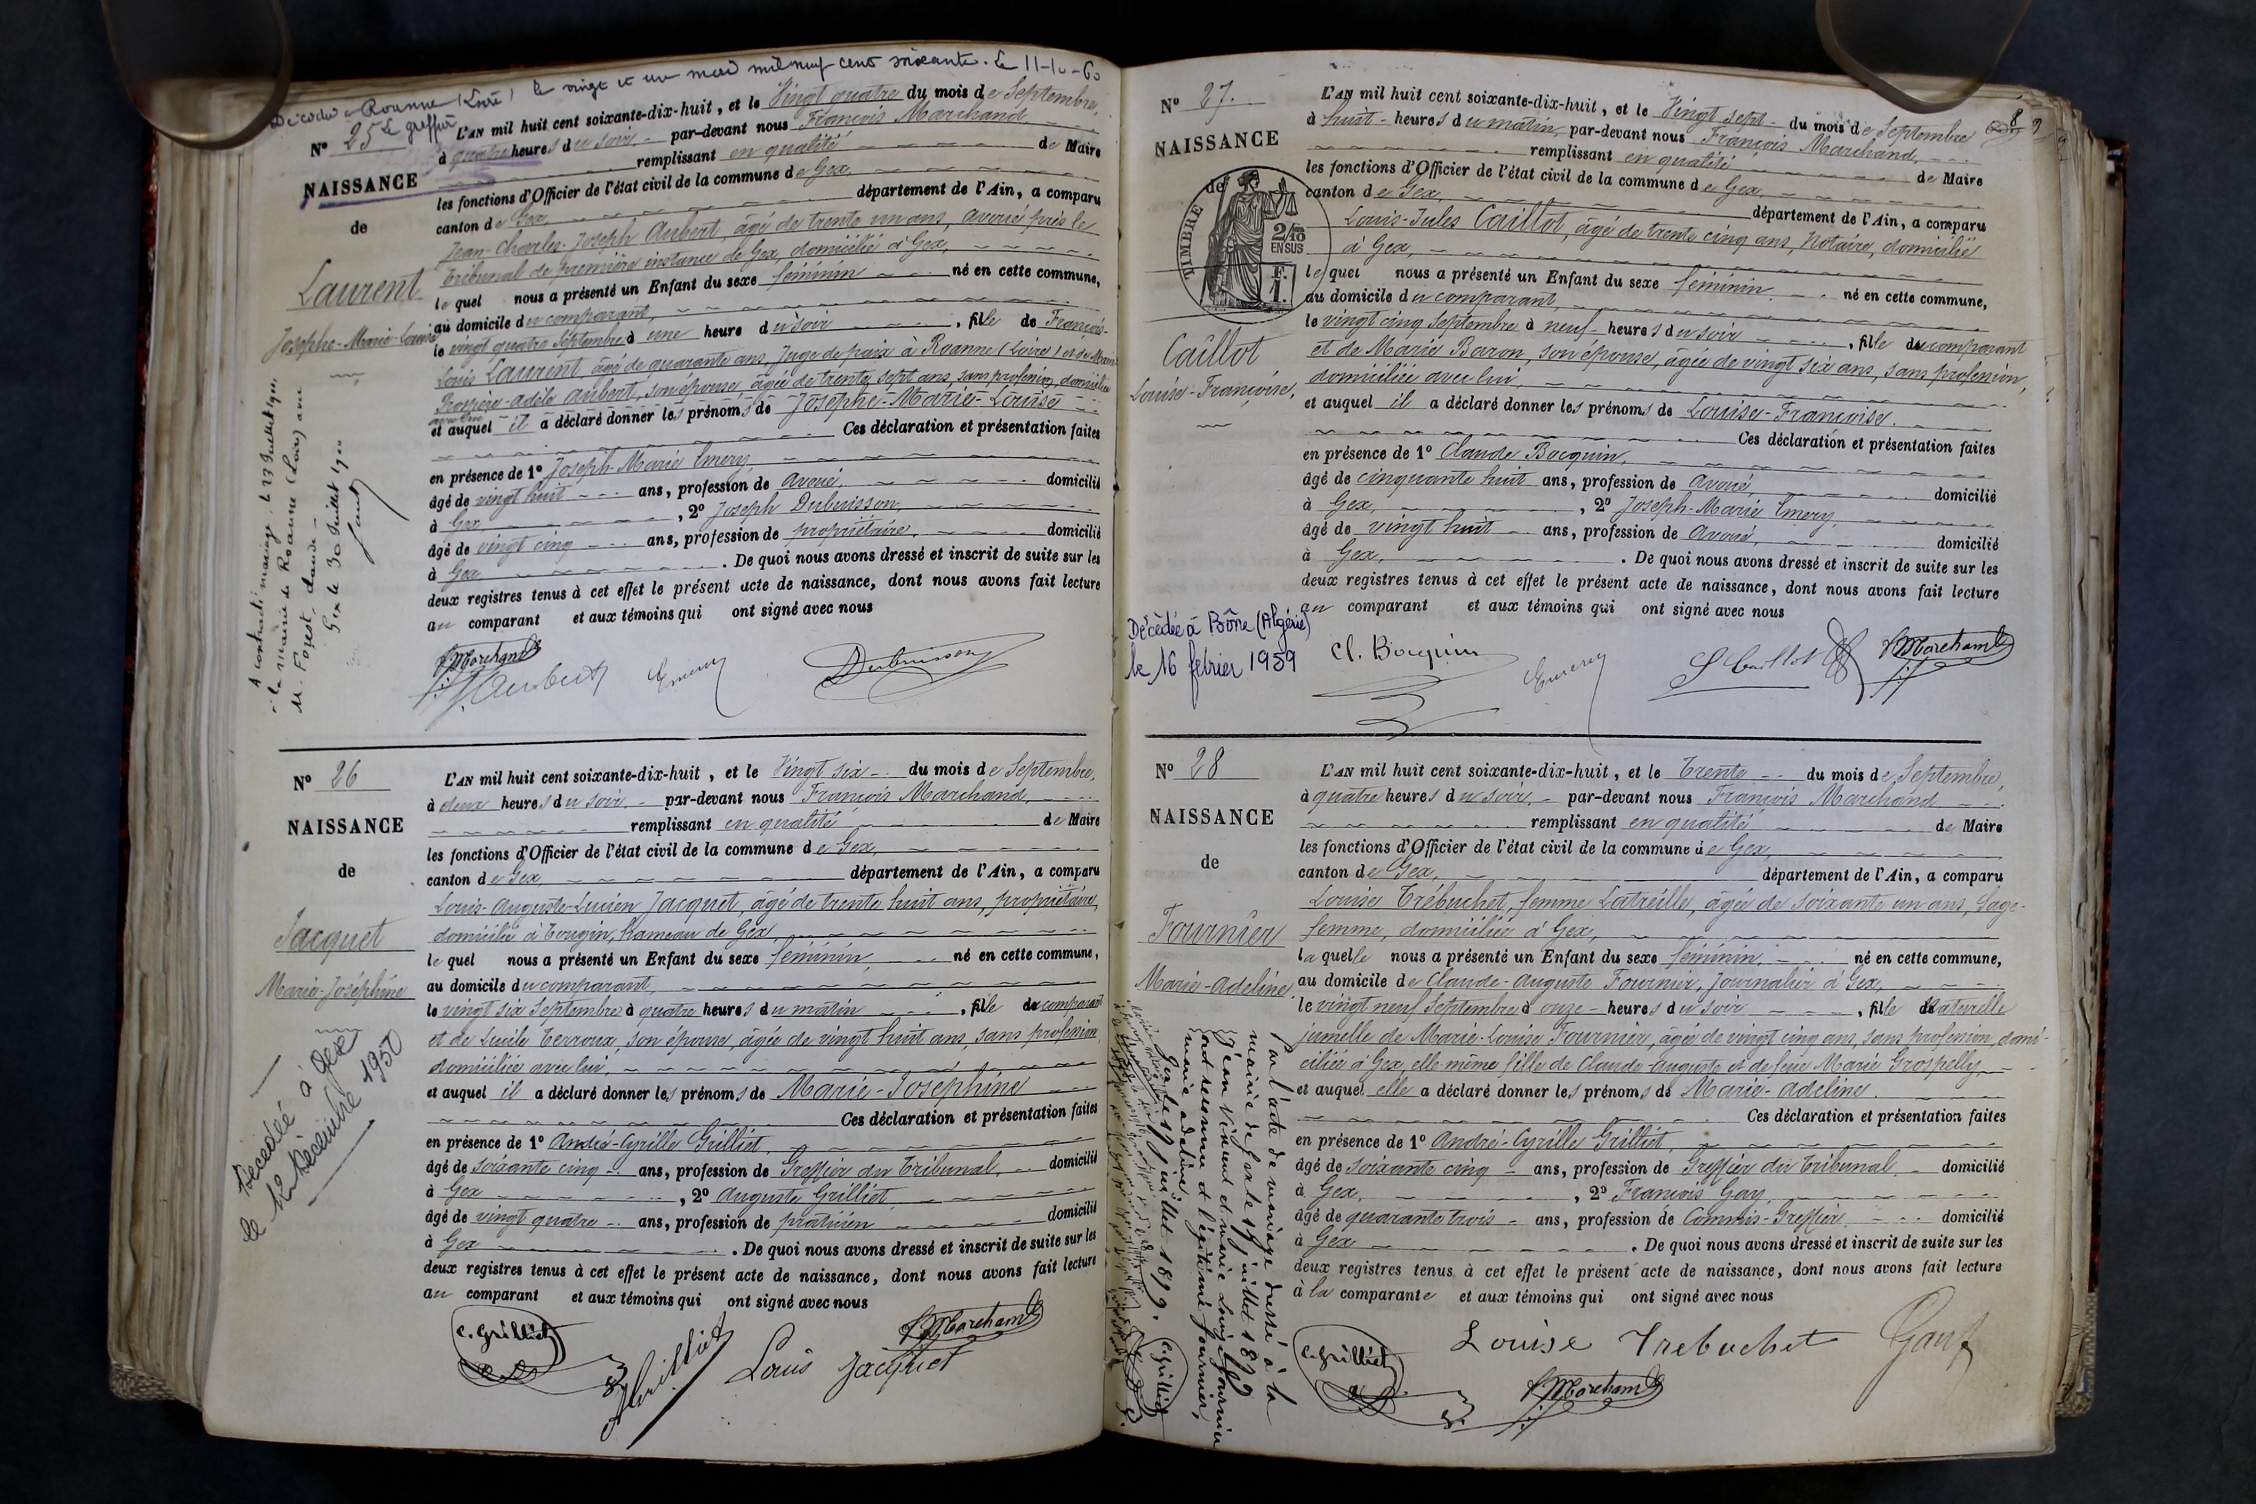 Décédée à Roanne (Loire) le vingt et un mars mil neuf cent soixante. Le 11-10-60
Le greffier
N° 25
NAISSANCE
de
Laurent
Josephe-Marie-Louise
A contracté mariage, le 23 Juillet 1900,
à la mairie de Roanne (Loire) avec
M. Forest, Claude
Gex le 30 Juillet 1900
L'AN mil huit cent soixante-dix-huit, et le Vingt quatre du mois de Septembre,
à quatre heures du soir, par-devant nous François Marchand
remplissant en qualité de Maire
les fonctions d'Officier de l'état civil de la commune de Gex,
canton de Gex, département de l'Ain, a comparu
Jean-Charles-Joseph Aubert, âgé de trente un ans, avoué près le
Tribunal de première instance de Gex, domicilié à Gex,
lequel nous a présenté un Enfant du sexe féminin né en cette commune,
au domicile du comparant,
le vingt quatre Septembre à une heure du soir, fille de François-
Louis Laurent âgé de quarante ans, Juge de paix à Roanne (Loire) et de Marie
Prospère-Adèle Aubert, son épouse, âgée de trente sept ans, sans profession, domiciliée
avec lui
et auquel il a déclaré donner les prénoms de Josephe-Marie-Louise
Ces déclaration et présentation faites
en présence de 1° Joseph-Marie Emery,
âgé de vingt huit ans, profession de Avoué, domicilié
à Gex, 2° Joseph Dubuisson,
âgé de vingt cinq ans, profession de propriétaire, domicilié
à Gex. De quoi nous avons dressé et inscrit de suite sur les
deux registres tenus à cet effet le présent acte de naissance, dont nous avons fait lecture
au comparant et aux témoins qui ont signé avec nous
F. Marchand
J. Aubert Emery Dubuisson
N° 26
NAISSANCE
de
Jacquet
Marie-Joséphine
Décédée à Gex
le 12 Décembre 1950
L'AN mil huit cent soixante-dix-huit, et le Vingt six du mois de Septembre,
à deux heures du soir, par-devant nous François Marchand,
remplissant en qualité de Maire
les fonctions d'Officier de l'état civil de la commune de Gex,
canton de Gex, département de l'Ain, a comparu
Louis-Auguste-Lucien Jacquet, âgé de trente huit ans, propriétaire,
domicilié à Tougin, hameau de Gex,
lequel nous a présenté un Enfant du sexe féminin, né en cette commune,
au domicile du comparant,
le vingt six Septembre à quatre heures du matin, fille du comparant
et de Lucile Terroux, son épouse, âgée de vingt huit ans, sans profession
domiciliée avec lui,
et auquel il a déclaré donner les prénoms de Marie-Joséphine
Ces déclaration et présentation faites
en présence de 1° André-Cyrille Grilliet,
âgé de soixante cinq ans, profession de Greffier du Tribunal, domicilié
à Gex, 2° Auguste Grilliet
âgé de vingt quatre ans, profession de praticien domicilié
à Gex. De quoi nous avons dressé et inscrit de suite sur les
deux registres tenus à cet effet le présent acte de naissance, dont nous avons fait lecture
au comparant et aux témoins qui ont signé avec nous
C. Grilliet A Grilliet Louis Jacquet F. Marchand
8
N° 27.
NAISSANCE
de
TIMBRE
2/10
EN SUS
F.
1.
Caillot
Louise-Françoise,
Décédée à Bône (Algérie)
le 16 février 1959
L'AN mil huit cent soixante-dix-huit, et le Vingt sept du mois de Septembre
à huit heures du matin, par-devant nous François Marchand,
remplissant en qualité de Maire
les fonctions d'Officier de l'état civil de la commune de Gex,
canton de Gex, département de l'Ain, a comparu
Louis-Jules Caillot, âgé de trente cinq ans, Notaire, domicilié
à Gex,
lequel nous a présenté un Enfant du sexe féminin, né en cette commune,
au domicile du comparant,
le vingt cinq Septembre à neuf heures du soir, fille du comparant
et de Marie Baron, son épouse, âgée de vingt six ans, sans profession,
domiciliée avec lui,
et auquel il a déclaré donner les prénoms de Louise-Françoise.
Ces déclaration et présentation faites
en présence de 1° Claude Bocquin,
âgé de cinquante huit ans, profession de Avoué, domicilié
à Gex, 2° Joseph-Marie Emery,
âgé de vingt huit ans, profession de Avoué, domicilié
à Gex. De quoi nous avons dressé et inscrit de suite sur les
deux registres tenus à cet effet le présent acte de naissance, dont nous avons fait lecture
au comparant et aux témoins qui ont signé avec nous
Cl. Bocquin Emery Caillot F. Marchand
N° 28
NAISSANCE
de
Fournier
Marie-Adeline,
Par l'acte de mariage dressé à la
mairie de
Jean Vincent et Marie Louise Fournier
ont reconnu et légitimé Fournier,
Marie Adeline.
Gex le 19 Juillet 1899.
C. Grilliet
L'AN mil huit cent soixante-dix-huit, et le Trente du mois de Septembre,
à quatre heures du soir, par-devant nous François Marchand
remplissant en qualité de Maire
les fonctions d'Officier de l'état civil de la commune de Gex,
canton de Gex, département de l'Ain, a comparu
Louise Trébuchet, femme Latreille, âgée de soixante un ans, Sage-
femme, domiciliée à Gex,
laquelle nous a présenté un Enfant du sexe féminin, né en cette commune,
au domicile de Claude-Auguste Fournier, Journalier à Gex,
le vingt neuf Septembre à onze heures du soir, fille naturelle
jumelle de Marie-Louise Fournier, âgée de vingt cinq ans, sans profession, domi-
ciliée à Gex, elle même fille de Claude Auguste et de feue Marie Grospelly,
et auquel elle a déclaré donner les prénoms de Marie-Adeline.
Ces déclaration et présentation faites
en présence de 1° André-Cyrille Grilliet,
âgé de soixante cinq ans, profession de Greffier du Tribunal domicilié
à Gex, 2° François Gay,
âgé de quarante trois ans, profession de Commis-Greffier domicilié
à Gex. De quoi nous avons dressé et inscrit de suite sur les
deux registres tenus à cet effet le présent acte de naissance, dont nous avons fait lecture
à la comparante et aux témoins qui ont signé avec nous
C. Grilliet Louise Trebuchet Gay F. Marchand